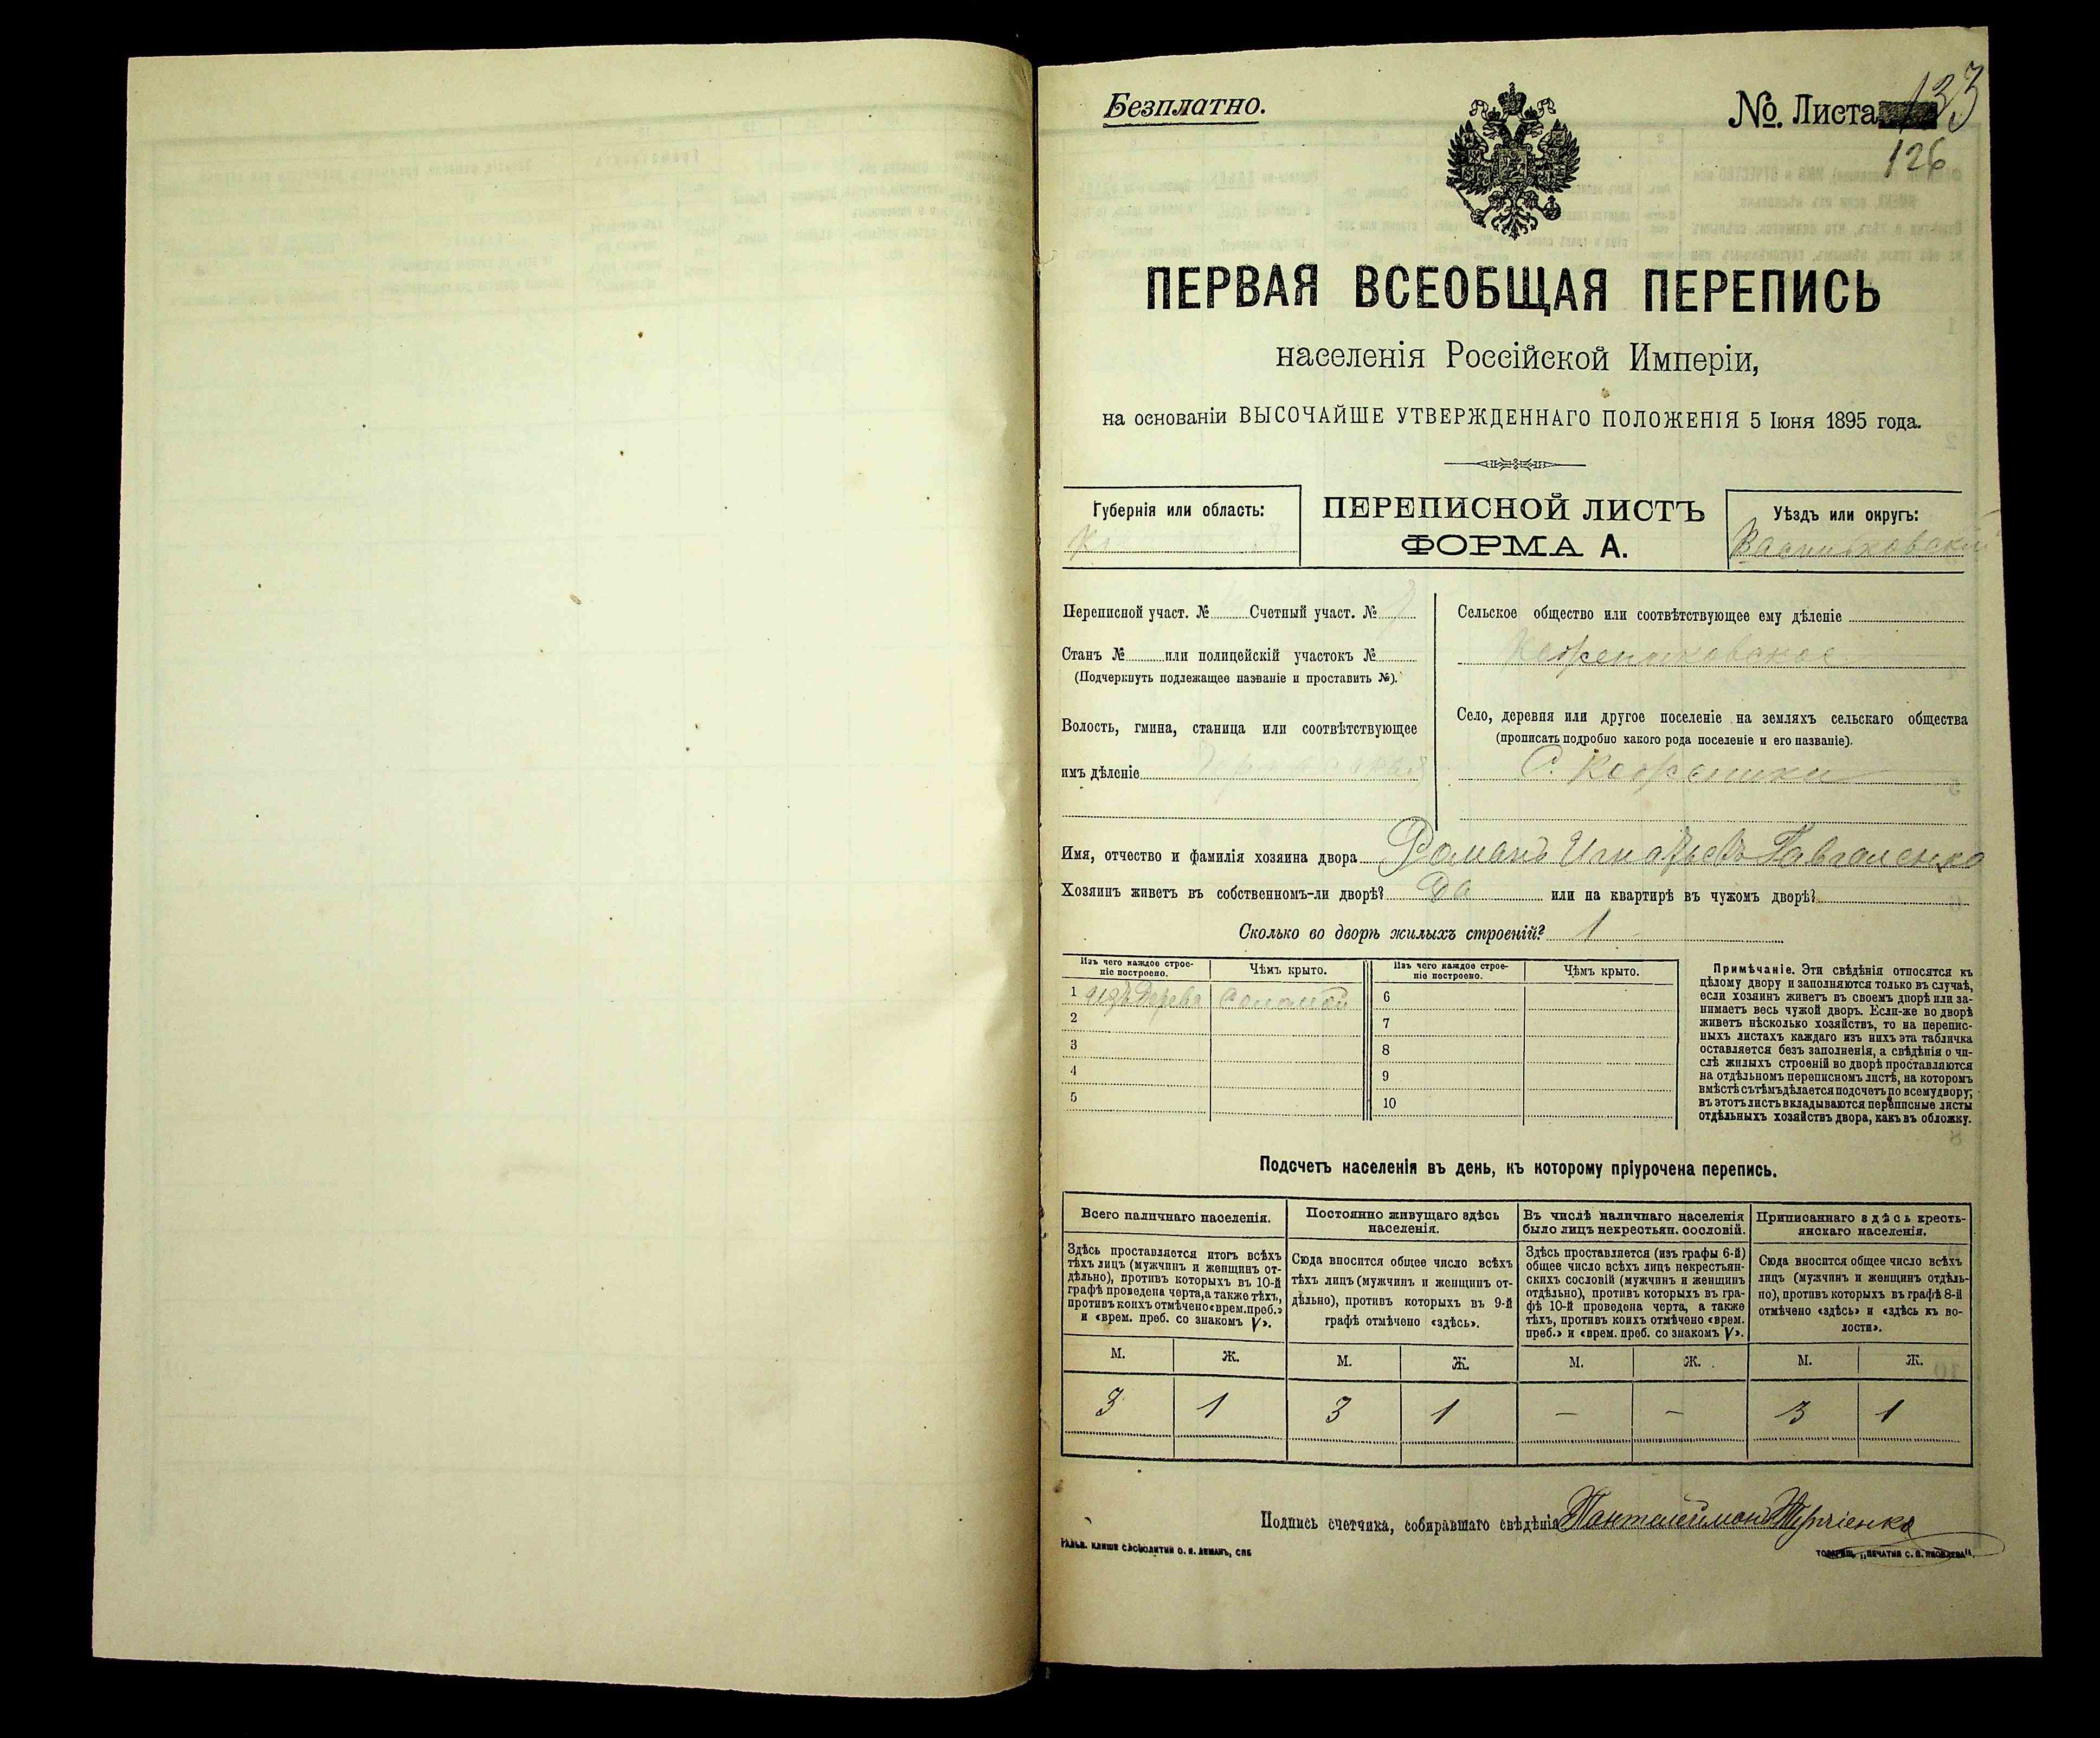 Безплатно.
№. Листа 133
126
ПЕРВАЯ ВСЕОБЩАЯ ПЕРЕПИСЬ
населенія Россійской Имперіи,
на основаніи ВЫСОЧАЙШЕ УТВЕРЖДЕННАГО ПОЛОЖЕНІЯ 5 Іюня 1895 года.
Губернія или область:
ПЕРЕПИСНОЙ ЛИСТЪ
ФОРМА А.
Уѣздъ или округъ:
Васильковскій
Переписной участ. № Счетный участ. №
Станъ № или полицейскій участокъ №
(Подчеркнуть подлежащее названіе и проставить №).
Волость, гмина, станица или соотвѣтствующее
имъ дѣленіе
Сельское общество или соотвѣтствующее ему дѣленіе
Село, деревня или другое поселеніе на земляхъ сельскаго общества
(прописать подробно какого рода поселеніе и его названіе).
С.
Имя, отчество и фамилія хозяина двора Романъ Игнатьевъ
Хозяинъ живетъ въ собственномъ-ли дворѣ? Да или на квартирѣ въ чужомъ дворѣ?
Сколько во дворѣ жилыхъ строеній? 1
Изъ чего каждое строе-
ніе построено.
Чѣмъ крыто.
Изъ чего каждое строе-
ніе построено.
Чѣмъ крыто.
1 изъ дерева Соломой
2
3
4
5
6
7
8
9
10
Примѣчаніе. Эти свѣдѣнія относятся къ
цѣлому двору и заполняются только въ случаѣ,
если хозяинъ живетъ въ своемъ дворѣ или за-
нимаетъ весь чужой дворъ. Если-же во дворѣ
живетъ нѣсколько хозяйствъ, то на перепис-
ныхъ листахъ каждаго изъ нихъ эта табличка
оставляется безъ заполненія, а свѣдѣнія о чи-
слѣ жилыхъ строеній во дворѣ проставляются
на отдѣльномъ переписномъ листѣ, на которомъ
вмѣстѣ съ тѣмъ дѣлается подсчетъ по всему двору;
въ этотъ листъ вкладываются переписные листы
отдѣльныхъ хозяйствъ двора, какъ въ обложку.
Подсчетъ населенія въ день, къ которому пріурочена перепись.
Всего наличнаго населенія.
Здѣсь проставляется итогъ всѣхъ
тѣхъ лицъ (мужчинъ и женщинъ от-
дѣльно), противъ которыхъ въ 10-й
графѣ проведена черта, а также тѣхъ,
противъ коихъ отмѣчено «врем. преб.»
и «врем. преб. со знакомъ V».
Постоянно живущаго здѣсь
населенія.
Сюда вносится общее число всѣхъ
тѣхъ лицъ (мужчинъ и женщинъ от-
дѣльно), противъ которыхъ въ 9-й
графѣ отмѣчено «здѣсь».
Въ числѣ наличнаго населенія
было лицъ некрестьян. сословій.
Здѣсь проставляется (изъ графы 6-й)
общее число всѣхъ лицъ некрестьян-
скихъ сословій (мужчинъ и женщинъ
отдѣльно), противъ которыхъ въ гра-
фѣ 10-й проведена черта, а также
тѣхъ, противъ коихъ отмѣчено «врем.
преб.» и «врем. преб. со знакомъ V».
Приписаннаго здѣсь кресть-
янскаго населенія.
Сюда вносится общее число всѣхъ
лицъ (мужчинъ и женщинъ отдѣль-
но), противъ которыхъ въ графѣ 8-й
отмѣчено «здѣсь» и «здѣсь къ во-
лости».
М. Ж. М. Ж. М. Ж. М. Ж.
3 1 3 1 — — 3 1
Подпись счетчика, собиравшаго свѣдѣнія Пантелеймонъ